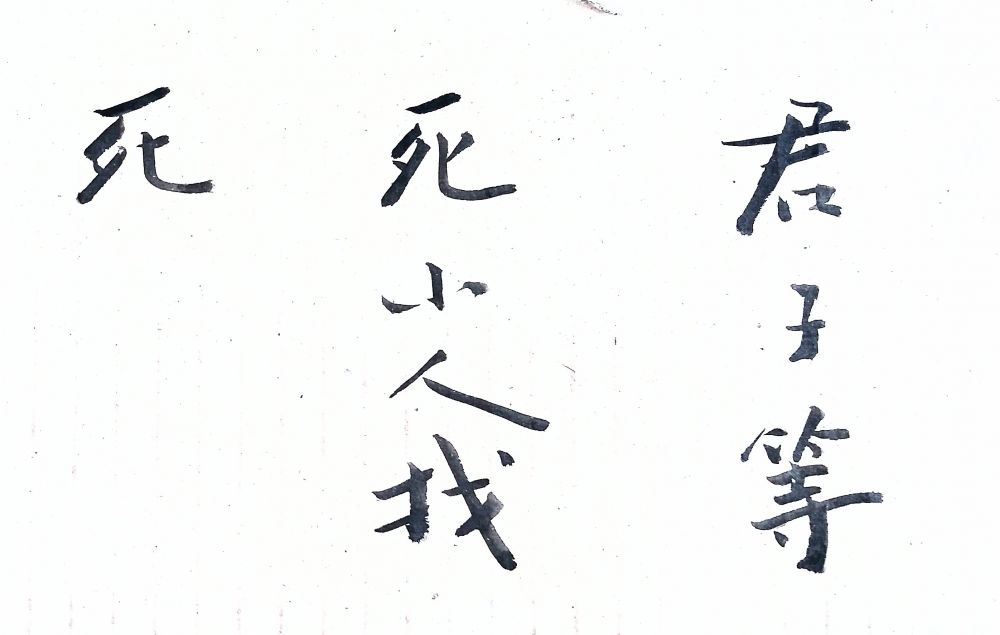 君子等
死小人找
死